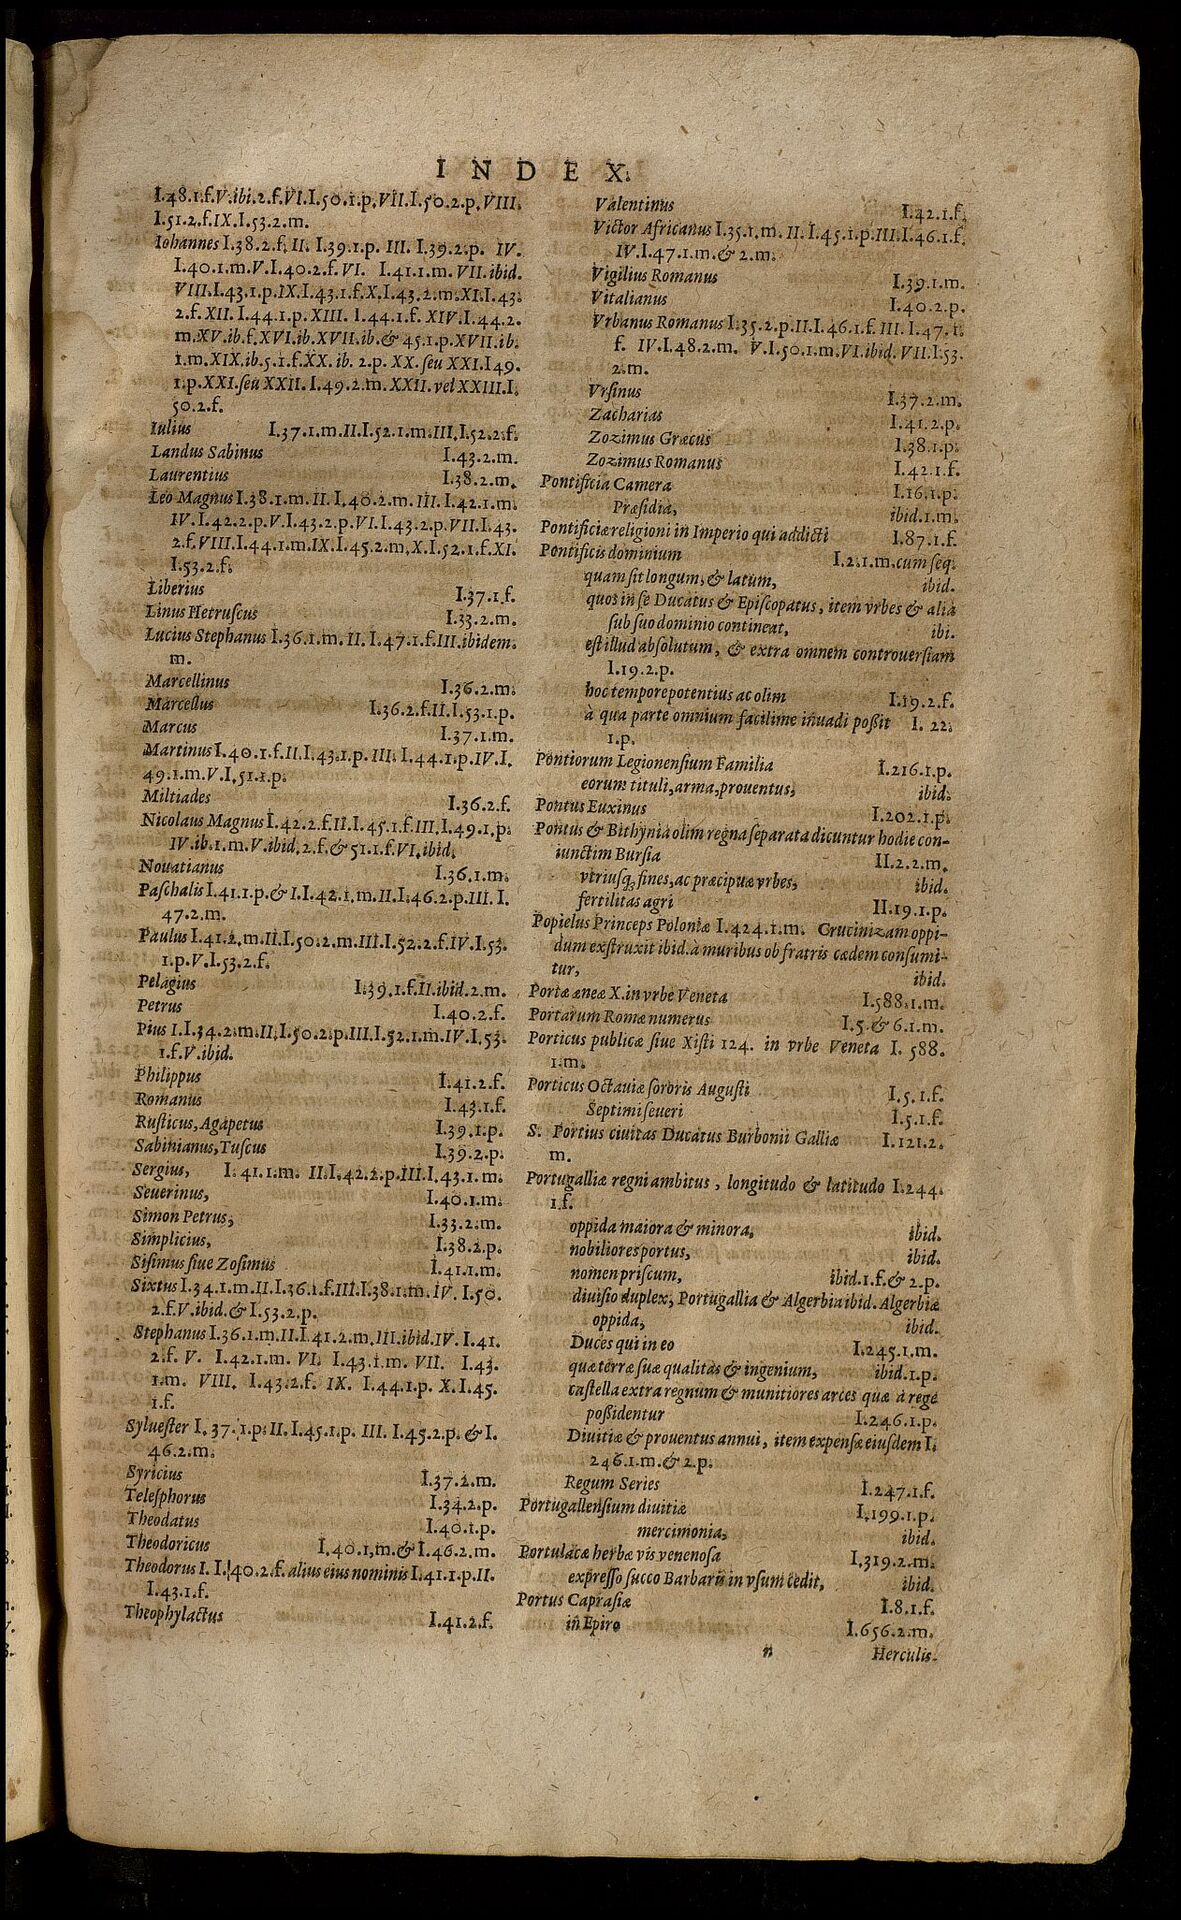 INDEX.
I.48.1.f.V.ibi.2.f.VI.I.50.1.p.VII.I.50.2.p.VIII.
I.51.2.f.IX.I.53.2.m.
Iohannes I.38.2.f. II. I.39.1.p. III. I.39.2.p. IV.
I.40.1.m.V.I.40.2.f.VI. I.41.1.m. VII.ibid.
VIII.I.43.1.p.IX.I.43.1.f.X.I.43.2.m.XI.I.43.
2.f. XII. I.44.1.p. XIII. I.44.1.f. XIV.I.44.2.
m.XV.ib.f.XVI.ib.XVII.ib.& 45.1.p.XVII.ib.
1.m.XIX.ib.5.1.f.XX.ib. 2.p. XX.ſeu XXI.I 49.
1.p.XXI.ſeu XXII. I.49.2.m.XXII.vel XXIII.I.
50.2.f.
Iulius I.37.1.m.II.I.52.1.m.III.I.52.2.f.
Landus Sabinus I.43.2.m.
Laurentius I.38.2.m.
Leo Magnus I.38.1.m. II. I.40.2.m. III. I.42.1.m.
IV.I.42.2.p.V.I.43.2.p.VI.I.43.2.p.VII.I.43.
2.f.VIII.I.44.1.m.IX.I.45.2.m.X.I.52.1.f.XI.
I.53.2.f.
Liberius I.37.1.f.
Linus Hetruſcus I.33.2.m.
Lucius Stephanus I.36.1.m. II. I.47.1.f.III.ibidem.
m.
Marcellinus I.36.2.m.
Marcellus I.36.2.f.II.I.53.1.p.
Marcus I.37.1.m.
Martinus I.40.1.f.II.I.43.1.p.III.I.44.1.p.IV.I.
49.1.m.V.I.51.1.p.
Miltiades I.36.2.f.
Nicolaus Magnus I.42.2.f.II.I.45.1.f.III.I.49.1.p.
IV.ib.1.m.V.ibid.2.f.& 51.1.f.VI.ibid.
Nouatianus I.36.1.m.
Paſchalis I.41.1.p.& I.I.42.1.m.II.I.46.2.p.III.I.
47.2.m.
Paulus I.41.2.m.II.I.50.2.m.III.I.52.2.f.IV.I.53.
1.p.V.I.53.2.f.
Pelagius I.39.1.f.II.ibid.2.m.
Petrus I.40.2.f.
Pius I.I.34.2.m.II.I.50.2.p.III.I.52.1.m.IV.I.53.
1.f.V.ibid.
Philippus I.41.2.f.
Romanus I.43.1.f.
Ruſticus, Agapetus I.39.1.p.
Sabinianus, Tuſcus I.39.2.p.
Sergius, I.41.1.m. II.I.42.2.p.III.I.43.1.m.
Seuerinus, I.40.1.m.
Simon Petrus, I.33.2.m.
Simplicius, I.38.2.p.
Siſimus ſiue Zoſimus I.41.1.m.
Sixtus I.34.1.m.II.I.36.1.f.III.I.38.1.m.IV.I.50.
2.f.V.ibid.& I.53.2.p.
Stephanus I.36.1.m.II.I.41.2.m.III.ibid.IV.I.41.
2.f. V. I.42.1.m. VI. I.43.1.m. VII. I.43.
1.m. VIII. I.43.2.f. IX. I.44.1.p. X.I.45.
1.f.
Sylueſter I.37.1.p.II.I.45.1.p. III. I.45.2.p.& I.
46.2.m.
Syricius I.37.2.m.
Teleſphorus I.34.2.p.
Theodatus I.40.1.p.
Theodoricus I.40.1.m.& I.46.2.m.
Theodorus I. I.40.2.f.alius eius nominis I.41.1.p.II.
I.43.1.f.
Theophylactus I.41.2.f.
Valentinus I.42.1.f.
Victor Africanus I.35.1.m. II. I.45.1.p.III.I.46.1.f.
IV.I.47.1.m.& 2.m.
Vigilius Romanus I.39.1.m.
Vitalianus I.40.2.p.
Vrbanus Romanus I.35.2.p.II.I.46.1.f.III.I.47.1.
f. IV.I.48.2.m. V.I.50.1.m.VI.ibid.VII.I.53.
2.m.
Vrſinus I.37.2.m.
Zacharias I.41.2.p.
Zozimus Græcus I.38.1.p.
Zozimus Romanus I.42.1.f.
Pontificia Camera I.16.1.p.
Præſidia, ibid.1.m.
Pontificiæ religioni in Imperio qui addicti I.87.1.f.
Pontificis dominium I.2.1.m.cum ſeq.
quam ſit longum, & latum, ibid.
quos in ſe Ducatus & Epiſcopatus, item vrbes & alia
ſub ſuo dominio contineat, ibi.
eſt illud abſolutum, & extra omnem controuerſiam
I.19.2.p.
hoc tempore potentius ac olim I.19.2.f.
à qua parte omnium facilime inuadi poßit I. 22.
1.p.
Pontiorum Legionenſium Familia I.216.1.p.
eorum tituli, arma, prouentus, ibid.
Pontus Euxinus I.202.1.p.
Pontus & Bithynia olim regna ſeparata dicuntur hodie con-
iunctim Burſia II.2.2.m.
vtriuſq; fines, ac præcipuæ vrbes, ibid.
fertilitas agri II.19.1.p.
Popielus Princeps Poloniæ I.424.1.m. Crucinizam oppi-
dum exſtruxit ibid.à muribus ob fratris cædem conſumi-
tur, ibid.
Portæ æneæ X. in vrbe Veneta I.588.1.m.
Portarum Romæ numerus I.5.& 6.1.m.
Porticus publicæ ſiue Xiſti 124. in vrbe Veneta I. 588.
1.m.
Porticus Octauiæ ſororis Auguſti I.5.1.f.
Septimi ſeueri I.5.1.f.
S. Portius ciuitas Ducatus Burbonii Galliæ I.121.2.
m.
Portugalliæ regni ambitus, longitudo & latitudo I.244.
1.f.
oppida maiora & minora, ibid.
nobiliores portus, ibid.
nomen priſcum, ibid.1.f.& 2.p.
diuiſio duplex, Portugallia & Algerbia ibid. Algerbiæ
oppida, ibid.
Duces qui in eo I.245.1.m.
quæ terræ ſuæ qualitas & ingenium, ibid.1.p.
caſtella extra regnum & munitiores arces quæ à rege
poßidentur I.246.1.p.
Diuitiæ & prouentus annui, item expenſæ eiuſdem I.
246.1.m.& 2.p.
Regum Series I.247.1.f.
Portugallenſium diuitiæ I.199.1.p.
mercimonia, ibid.
Portulacæ herbæ vis venenoſa I.319.2.m.
expreſſo ſucco Barbari in vſum cedit, ibid.
Portus Capraſiæ I.8.1.f.
in Epiro I.656.2.m.
n Herculis